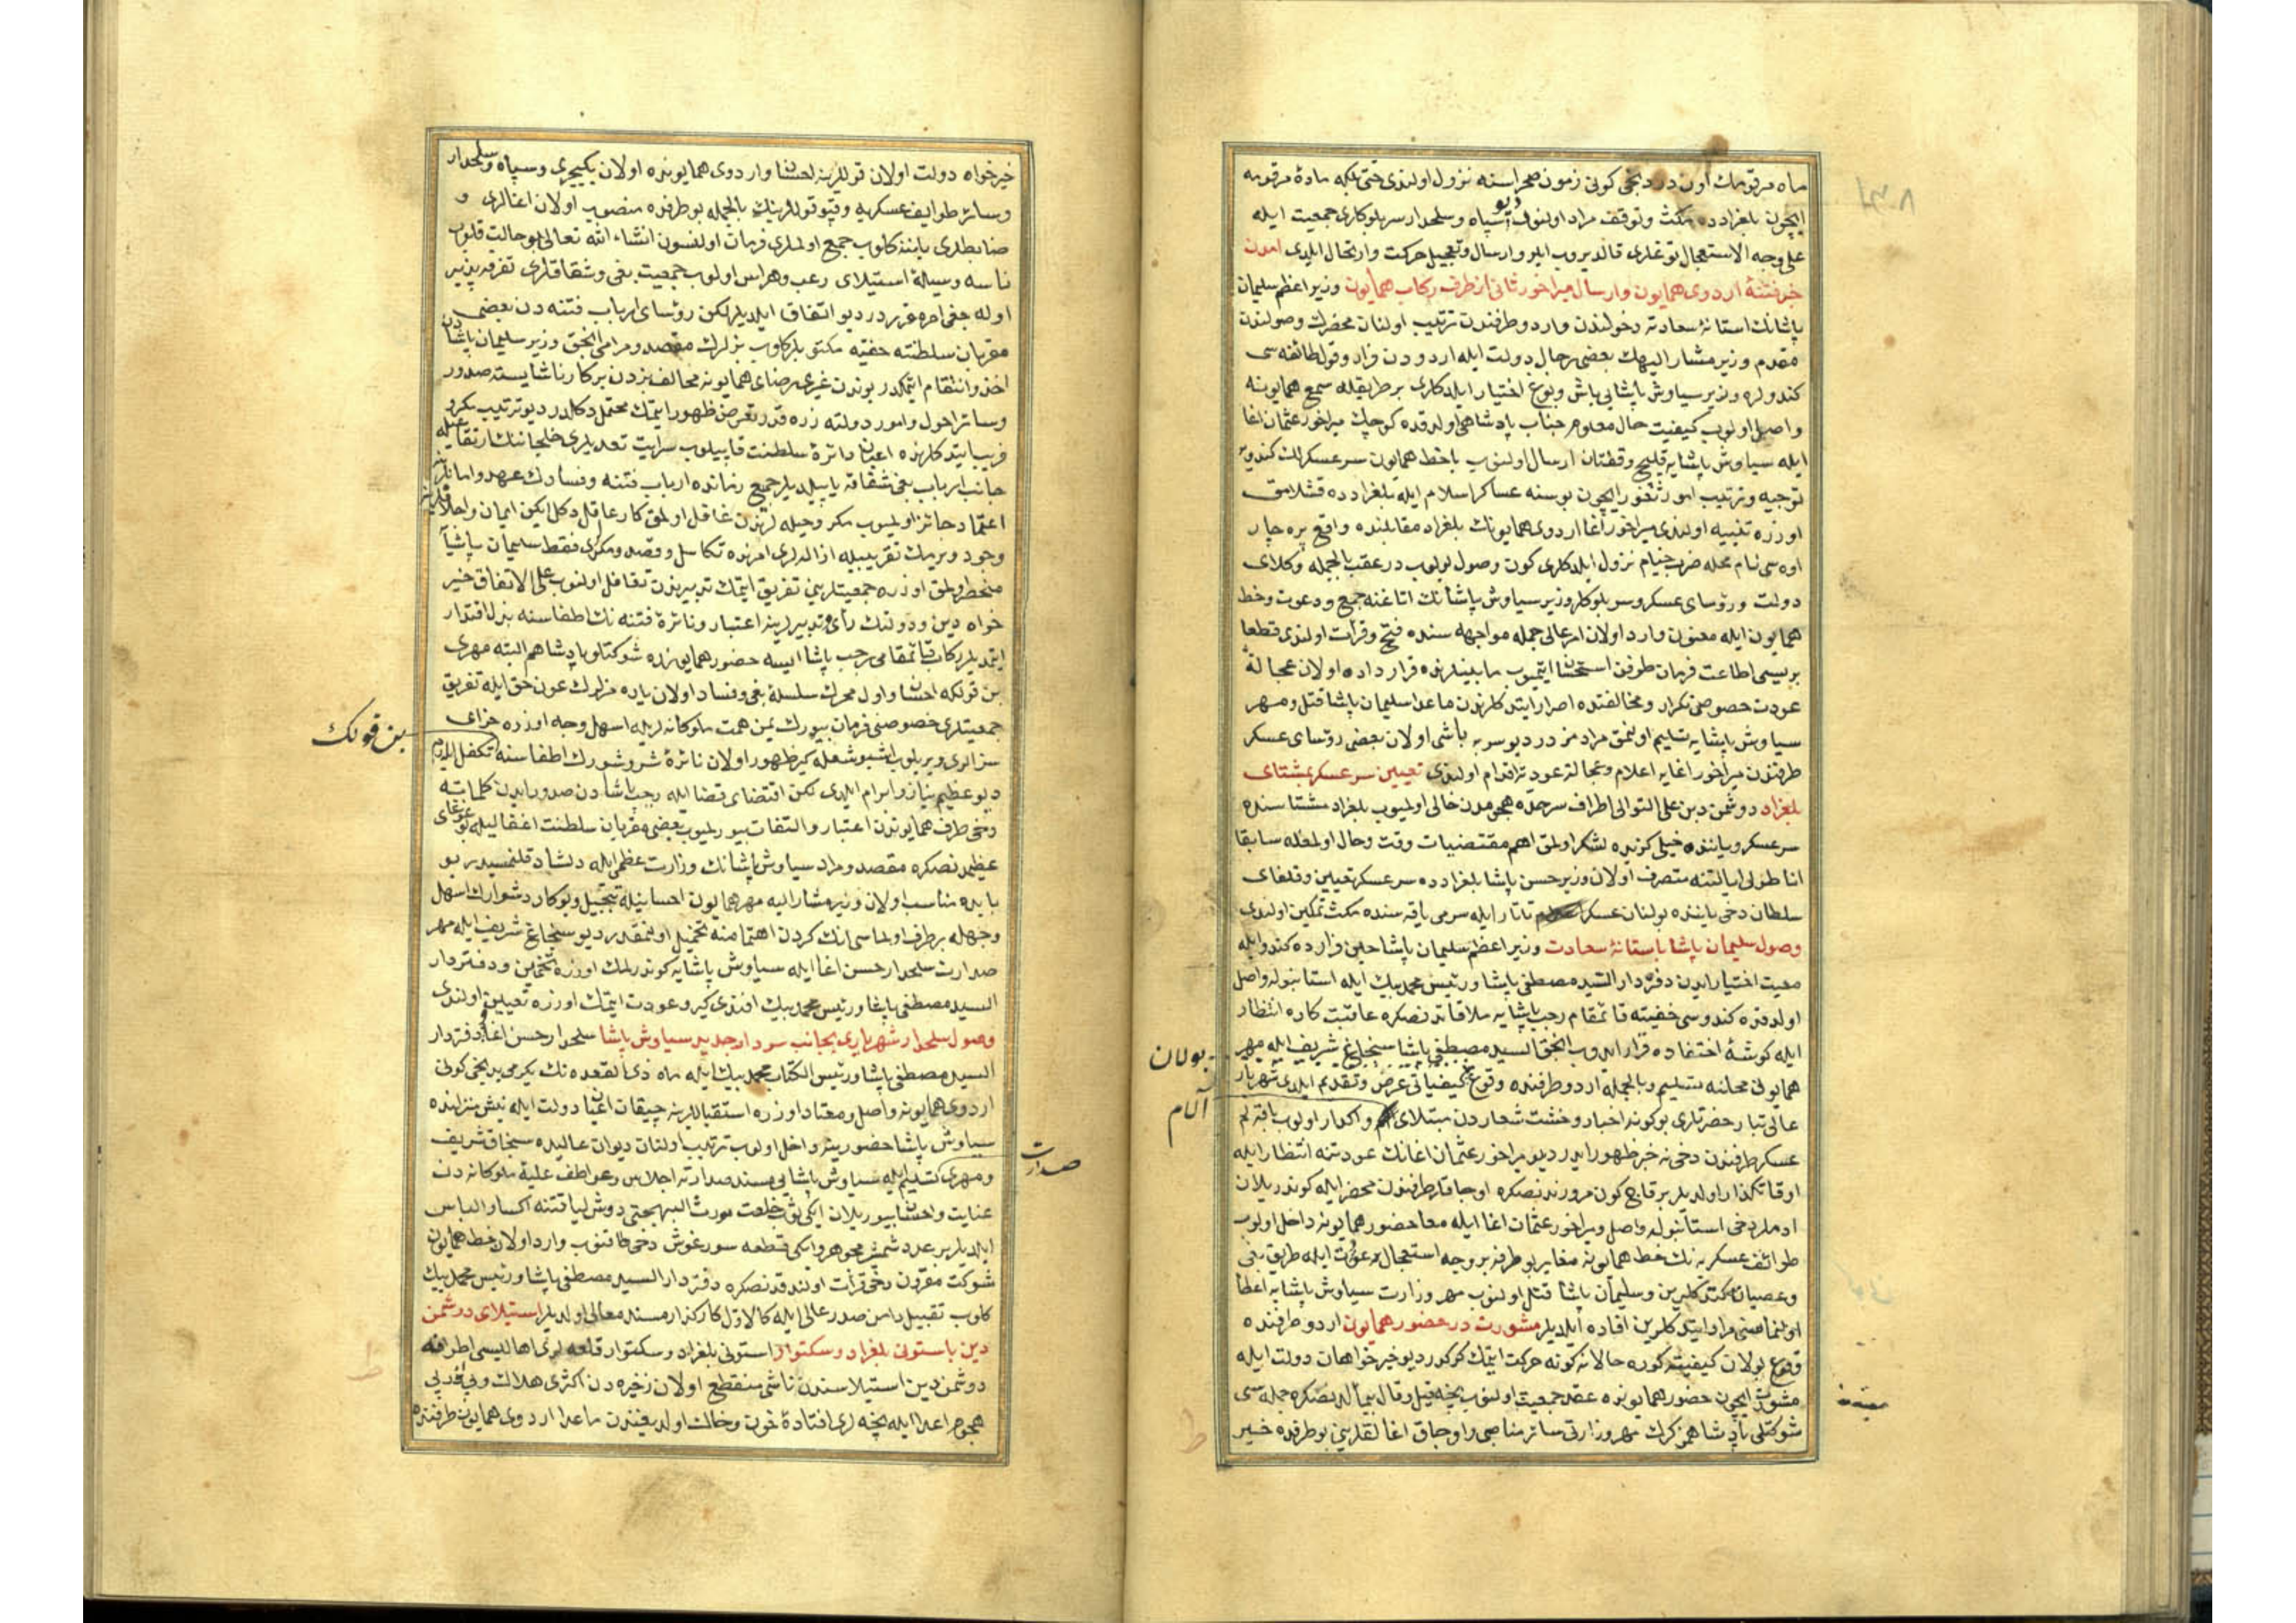 ماه مرقومك اون دردنجی كونی زمون صحراسنه نزول اولندی حتی بلكه مادۀ مرقومه
ایچون بلغرادده مكث وتوقف مراد اولنوب دیو سپاه وسلحدار سر بلوكلری جمعیت ایله
علی وجه الاستعجال توغلری قالدیروب ایلرو ارسال وتعجیل حركت وارتحال ایلدی امدن
خبر فتنۀ اردوی همایون وارسال میراخور ثانی از طرف ركاب همایون وزیر اعظم سلیمان
پاشانك استانۀ سعادته دخولندن واردو طرفندن ترتیب اولنان محضرك وصولندن
مقدم وزیر مشار الیهك بعضی رجال دولت ایله اردودن فرار وقول طائفه سی
كندولره وزیر سیاوش پاشایی باش وبوغ اختیار ایلدكلری بر طریقله سمع همایونه
واصل اولوب كیفیت حال معلوم جناب پادشاهی اولدقده كوچك میراخور عثمان اغا
ایله سیاوش پاشایه قلیج وقفتان ارسال اولنوب باخط همایون سرعسكرلك كندویه
توجیه وترتیب امور ثغور ایچون بو سنه عساكر اسلام ایله بلغرادده قشلامق
اوزره تنبیه اولندی میراخور اغا اردوی همایونك بلغراد مقابلنده واقع پره چار
اوه سی نام محله ضرب خیام نزول ایلدكلری كون وصول بولوب در عقب بالجمله وكلای
دولت ورؤسای عسكر وسر بلوكلر وزیر سیاوش پاشانك اتاغنه جمع ودعوت وخط
همایون ایله معنون وارد اولان امر عالی جمله مواجهه سنده فتح وقرأت اولندی قطعا
بریسی اطاعت فرمان طرفن استحسان ایتمیوب مابینلرنده قرارداده اولان عجالةً
عودت خصوصنی تكرار ومخالفتده اصرار ایتدكلرندن ماعدا سلیمان پاشا قتل ومهر
سیاوش پاشایه تسلیم اولنمق مرادمزدر دیو سر به باشی اولان بعضی رؤسای عسكر
طرفندن میراخور اغایه اعلام وعجالة عودته اقدام اولندی تعیین سرعسكر بمشتای
بلغراد دوشمن دین علی التوالی اطراف سرحده هجومدن خالی اولمیوب بلغراد مشتاسنده
سرعسكر ویاننده خیلی كزیده لشكر اولمق اهم مقتضیات وقت وحال اولمغله سابقا
اناطولی ایالتنه متصرف اولان وزیر حسن پاشا بلغرادده سرعسكر تعیین وقلغای
سلطان دخی یاننده بولنان عسكر تاتار ایله سرمی یاقه سنده مكث تمكین اولندی
وصول سلیمان پاشا باستانۀ سعادت وزیر اعظم سلیمان پاشا حین فرارده كندو ایله
معیت اختیار ایدن دفتردار السید مصطفی پاشا ورئیس محمد بیك ایله استانبوله واصل
اولدقده كندوسی خفیته قائمقام رجب پاشایه ملاقاتدنصكره عاقبت كاره انتظار
ایله كوشۀ اختفاده قرار ایدوب انجق السید مصطفی پاشا سنجاغ شریف ایله مهر
همایونی محلنه تسلیم وبالجمله اردو طرفنده وقوع بولان كیفیاتی عرض وتقدیم ایلدی شهریار
عالی تبار حضرتلری بو كونه اخبار وخشت شعاردن مبتلای آلام واكدار اولوب باقه لم
عسكر طرفندن دخی نه خبر ظهور ایدر دیو میراخور عثمان اغانك عودتنه انتظار ایله
اوقات كذار اولدیلر بر قاچ كون مرورندنصكره اوجاقلر طرفندن محضر ایله كوندریلان
ادملر دخی استانبوله واصل ومیراخور عثمان اغا ایله معا حضور همایونه داخل اولوب
طوائف عسكریه نك خط همایونه مغایر بو طرفه بر وجه استعجال عودت ایله طریق بغی
وعصیانه كتدكلرین وسلیمان پاشا قتل اولنوب مهر وزارت سیاوش پاشایه اعطا
اولنماسنی مراد ایتدكلرین افاده ایلدیلر مشورت در حضور همایون اردو طرفنده
وقوع بولان كیفیته كوره حالا نه كونه حركت ایتمك كركدر دیو خیرخواهان دولت ایله
مشورت ایچون حضور همایونده عقد جمعیت اولنوب نیجه قیل وقال بیماٰلدنصكره جمله سی
شوكتلی پادشاهم كرك مهر وزارتی سائر مناصبی واوجاق اغالقلرینی بو طرفده خیر
بولان
آلام
خیرخواه دولت اولان قوللرینه احسان واردوی همایونده اولان یكیچری وسپاه وسلحدار
وسائر طوایف عسكریه وقپو قوللرینك بالجمله بو طرفده منصوب اولان اغالری و
ضابطلری یاننه كلوب جمع اولملری فرمان اولنسون انشاء الله تعالی بو حالت قلوب
ناسه وسیلۀ استیلای رعب وهراس اولوب جمعیت بغی وشقاقلری تفرقه پذیر
اوله جغی امر مقرردر دیو اتفاق ایلدیلر لكن رؤسای ارباب فتنه دن بعضی
مقربان سلطنته خفیه مكتوبلر كلوب بزلرك مقصد ومرامی انجق وزیر سلیمان پاشادن
اخذ وانتقام ایتمكدر بوندن غیری رضای همایونه مخالف بزدن بر كار ناشایسته صدور
وسائر احول وامور دولته زره قدر تعرض ظهور ایتمك محتمل دكلدر دیو ترتیب مكر و
فریب ایتدكلرنده اعیان دائرۀ سلطنت قاپیلوب
جانب ارباب بغی شقاقه یاپیلدیلر جمیع زمانده ارباب فتنه وفسادك عهد وامانلرینه
اعتماد جائز اولمیوب مكر وحیله لرندن غافل اولمق كار عاقل دكل ایكن ایمان واحلافلرینه
وجود ویرمك تقریبیله ازاله لری امرنده تكاسل وقصد ومكرلری فقط سلیمان پاشایه
منحصر اولمق اوزره جمعیتلرینی تفریق ایتمك تدبیرندن تغافل اولنوب علی الاتفاق خیر
خواه دین ودولتك رأی وتدبیرلرینه اعتبار ونائرۀ فتنه نك اطفاسنه بذل اقتدار
ایتمدیلر ركاب قائمقامی رجب پاشا ایسه حضور همایونده شوكتلو پادشاهم البته مهری
بن قولكه احسان واول محرك سلسلۀ بغی وفساد اولان یاره مزلرك عون حق ایله تفریق
جمعیتلری خصوصنی فرمان بیورك یمن همت ملوكانه لریله اسهل وجه اوزره جزای
سزالری ویریلوب اشبو شعله كیر ظهور اولان نائرۀ شر وشورك اطفاسنه تكفل ایدرم
دیو عظیم نیاز وابرام ایلدی لكن اقتضای قضا ایله رجب پاشادن صدور ایدن كلماته
دخی طرف همایوندن اعتبار والتفات بیورلمیوب بعضی مقربان سلطنت اغفالیله بو غوغای
عظیمدنصكره مقصد ومراد سیاوش پاشانك وزارت عظمی ایله دلشاد قلنمسیدر بو
بابده مناسب اولان وزیر مشار الیه مهر همایون احسانیله تبجیل وبو كار دشوارك اسهل
وجهله برطرف اولماسی انك كردن اهتمامنه تحمیل اولنمقدر دیو سنجاغ شریف ایله مهر
صدارت سلحدار حسن اغا ایله سیاوش پاشایه كوندرلمك اوزره تخمین ودفتردار
السید مصطفی پاشا ورئیس محمد بیك افندی كیرو عودت ایتمك اوزره تعیین اولندی
وصول سلحدار شهریاری بجانب سردار جدید سیاوش پاشا سلحدار حسن اغا ودفتردار
السید مصطفی پاشا ورئیس الكتاب محمد بیك ایله ماه ذی القعده نك یكرمی بدنجی كونی
اردوی همایونه واصل ومعتاد اوزره استقباللرینه چیقان اعیان دولت ایله نیش منزلنده
سیاوش پاشا حضورینه داخل اولوب ترتیب اولنان دیوان عالیده سنجاق شریف
ومهری تسلیم ایله سیاوش پاشایی مسند صدارته اجلاس وعواطف علیۀ ملوكانه دن
عنایت واحسان بیوریلان ایكی ثوب خلعت مورث البهجتی دوش لیاقتنه اكسا والباس
ایلدیلر بر عدد شمشیر مجوهر وایكی قطعه سورغوش دخی طاقنوب وارد اولان خط همایون
شوكت مقرون دخی قرأت اولندقدنصكره دفتردار السید مصطفی پاشا ورئیس محمد بیك
كلوب تقبیل دامن صدر عالی ایله كالاول كاركذار مسند معالی اولدیلر استیلای دوشمن
دین باستونی بلغراد وسكتوار استونی بلغراد وسكتوار قلعه لری اهالیسی اطرافه
دوشمن دین استیلاسندن ناشی منقطع اولان زخیره دن اكثری هلاك وپی در پی
هجوم اعدا ایله نیجه لری افتادۀ خون وخاك اولدیغندن ماعدا اردوی همایون طرفنده
بن قولك
صدارت